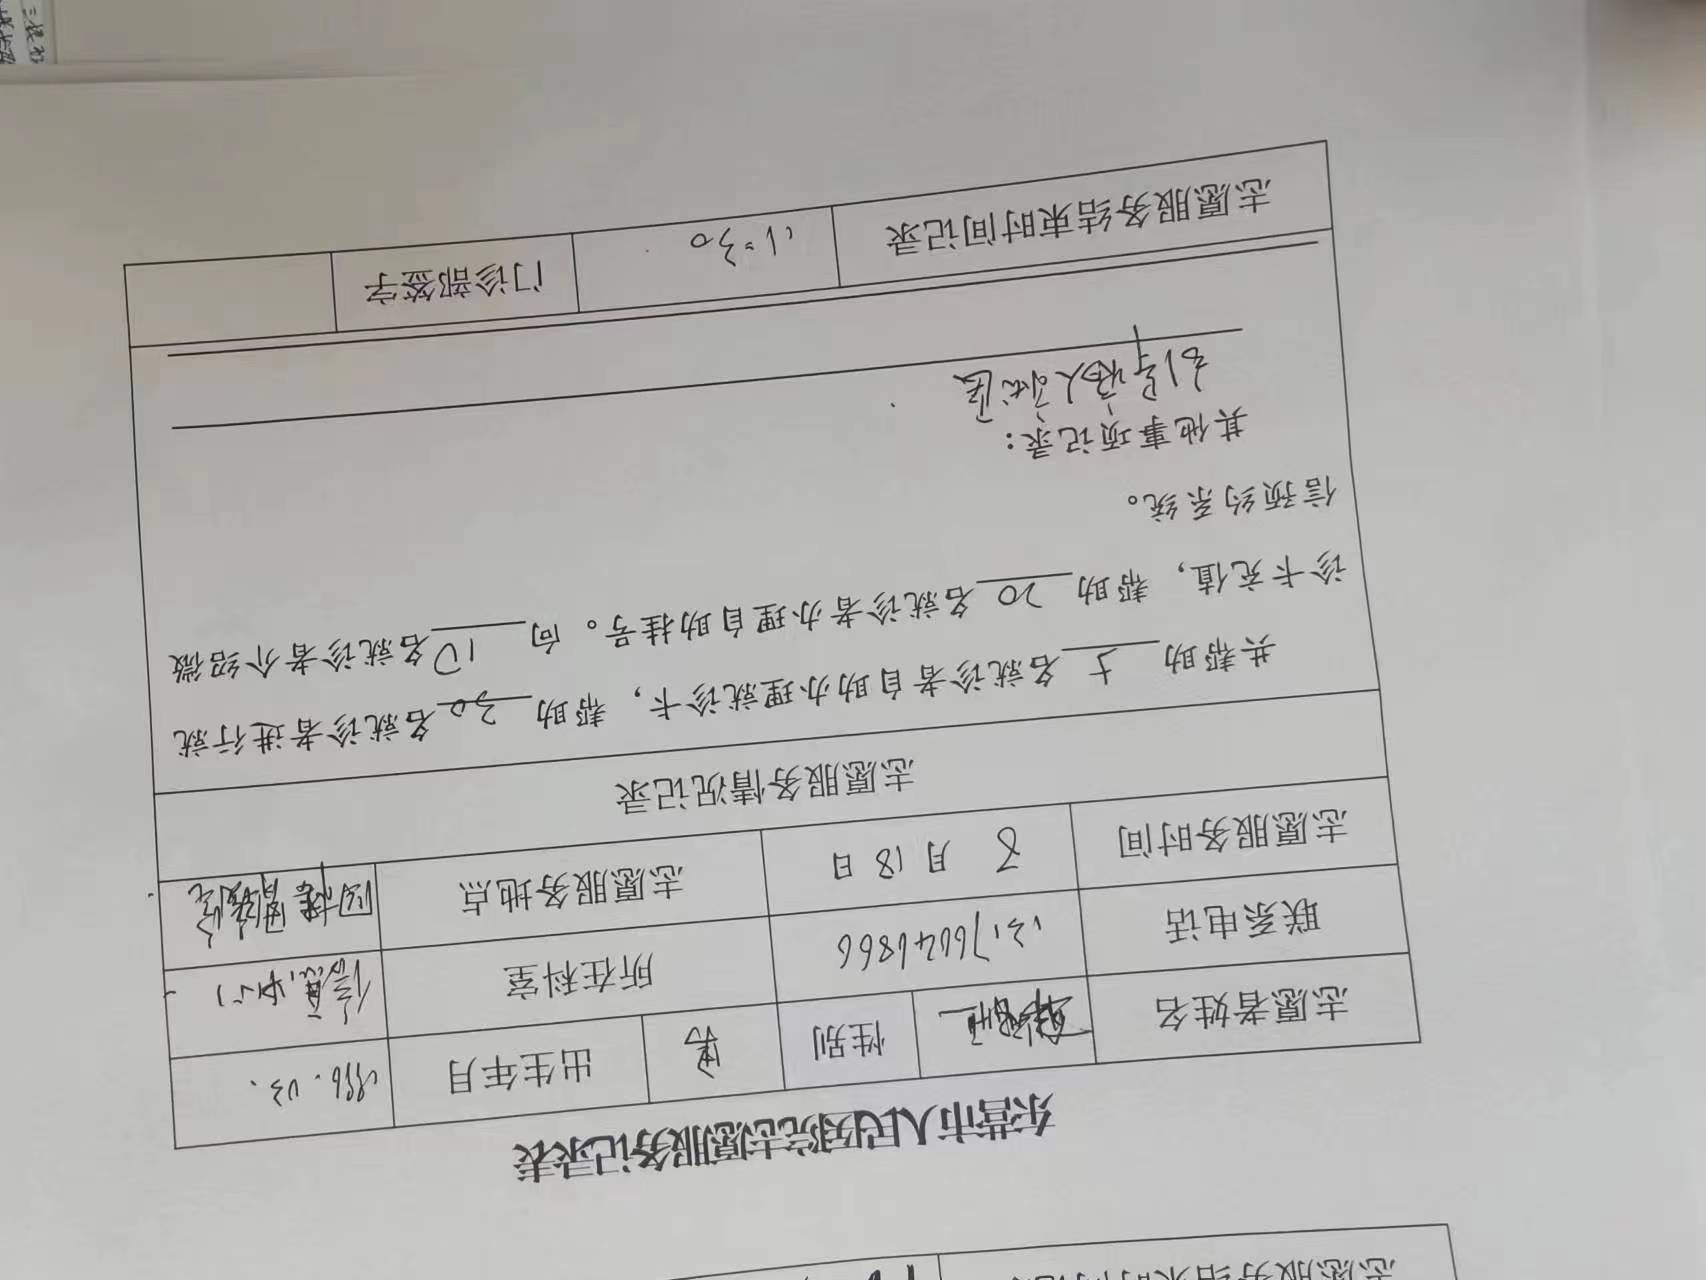 东营市人民医院志愿服务记录表
志愿者姓名 性别 男 出生年月 1996.03.
联系电话 13176646866 所在科室 信息中心
志愿服务时间 8月18日 志愿服务地点
志愿服务情况记录
共帮助 5 名就诊者自助办理就诊卡，帮助 30 名就诊者进行就
诊卡充值，帮助 20 名就诊者办理自助挂号。向 10 名就诊者介绍微
信预约系统。
其他事项记录：
引导病人就医
志愿服务结束时间记录 11:30 门诊部签字